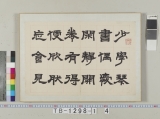 少學琴
書偶愛
閑靜開
卷有得
便欣然
忘食見
TB-1298-11 4